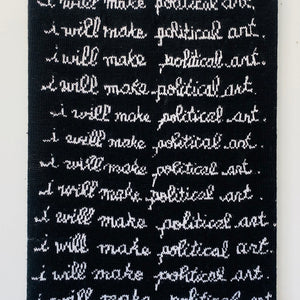 i will make political art.
i will make political art.
i will make political art.
i will make political art.
i will make political art.
i will make political art.
i will make political art.
i will make political art.
i will make political art.
i will make political art.
i will make political art.
i will make political art.